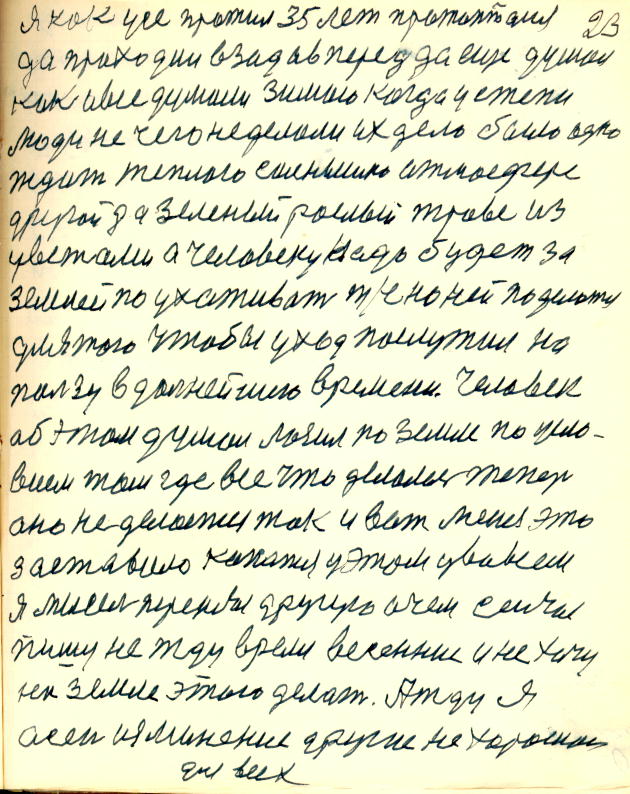 Я как усе прожил 35 лет протоптался
23
да проходил взад вперед да еще думал
как и все думали зимою когда у степи
люди не чего неделали их дело было одно
ждат теплого солнышко атмосфере
другой да зеленый рослый траве из
цветами а человеку надо будет за
землей поухаживат т/е на ней поделатся
для того чтобы уход послужил на
ползу в далнейшего времени. Человек
об этом думал лазил по земле по
всем там где все что делалос тепер
оно не делается так и вот меня это
заставило копатся у этом у во всем
я мысел другиро о чем сейчас
пишу не жду время весенние и не хочу
на земле этого делат. А жду я
осен изминение другие не хорошои
для всех